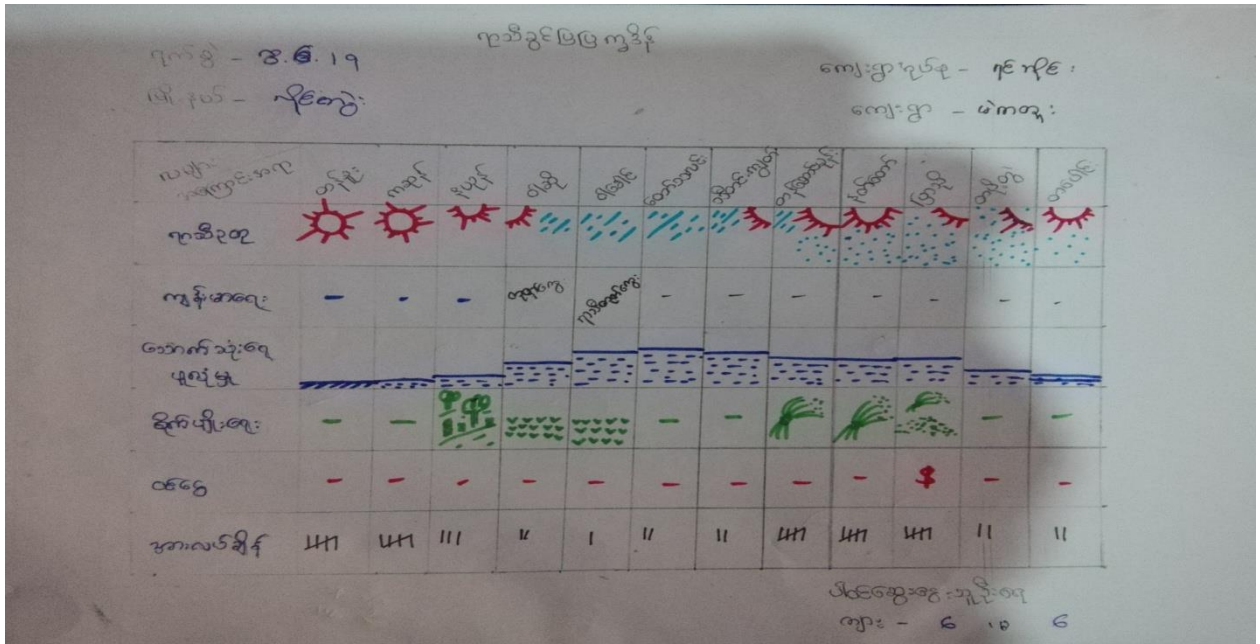 ရာသီခွင်ပြပြက္ခဒိန်
ရက်စွဲ - ၃.၆.၁၉
ကျေးရွာအုပ်စု -
မြို့နယ် - လှိုင်းဘွဲ့
ကျေးရွာ -
လများ
အကြောင်းအရာ
တန်ခူး ကဆုန် နယုန် ဝါဆို ဝါခေါင် တော်သလင်း သီတင်းကျွတ် တန်ဆောင်မုန်း နတ်တော် ပြာသို တပို့တွဲ တပေါင်း
ရာသီဥတု
ကျန်းမာရေး - - - - - - - - - -
သောက်သုံးရေ
ဖူလုံမှု
စိုက်ပျိုးရေး - - - - - -
ဝင်ငွေ - - - - - - - - - $ - -
အားလပ်ချိန်
ပါဝင်ဆွေးနွေးသူဦးရေ
ကျား - ၆ ၊ မ ၆